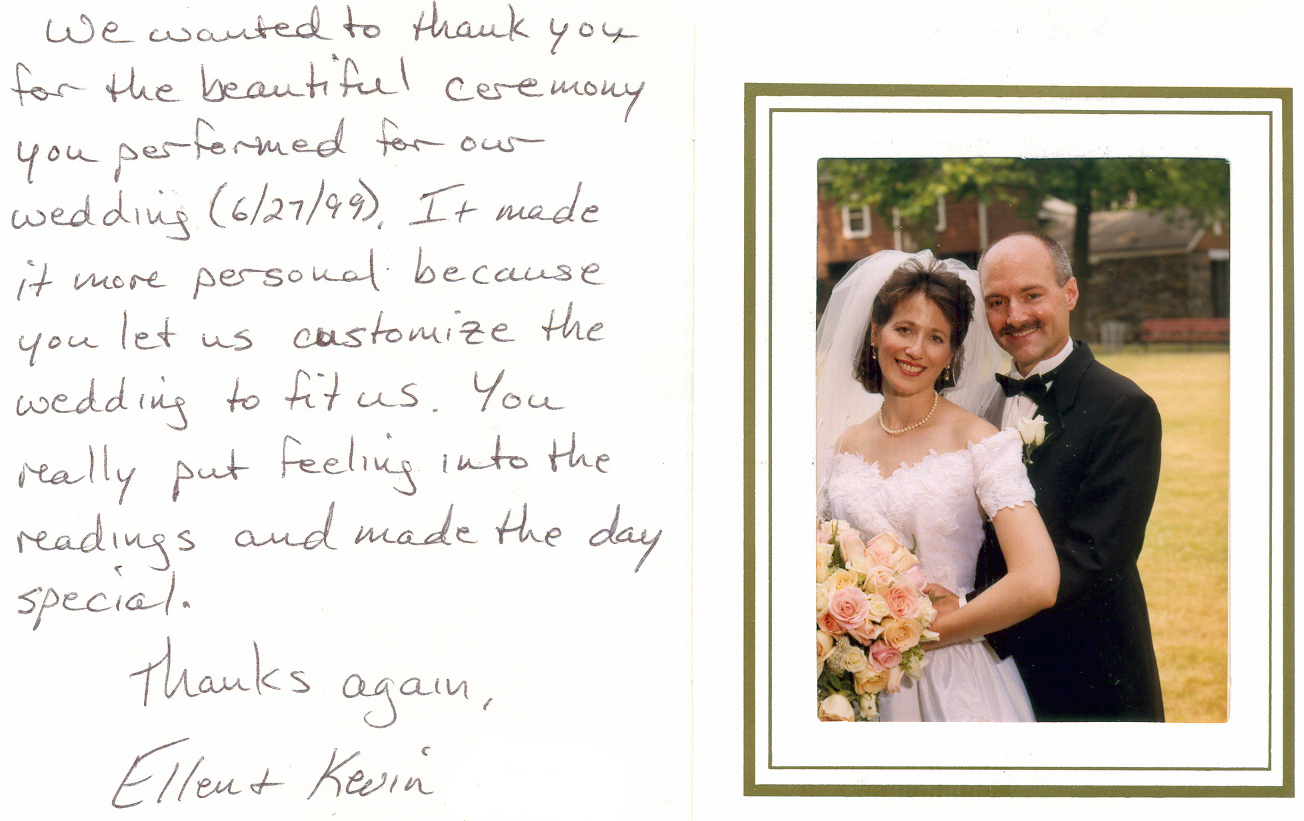 We wanted to thank you
for the beautiful ceremony
you performed for our
wedding (6/27/99). It made
it more personal because
you let us customize the
wedding to fit us. You
really put feeling into the
readings and made the day
special.
Thanks again,
Ellen + Kevin